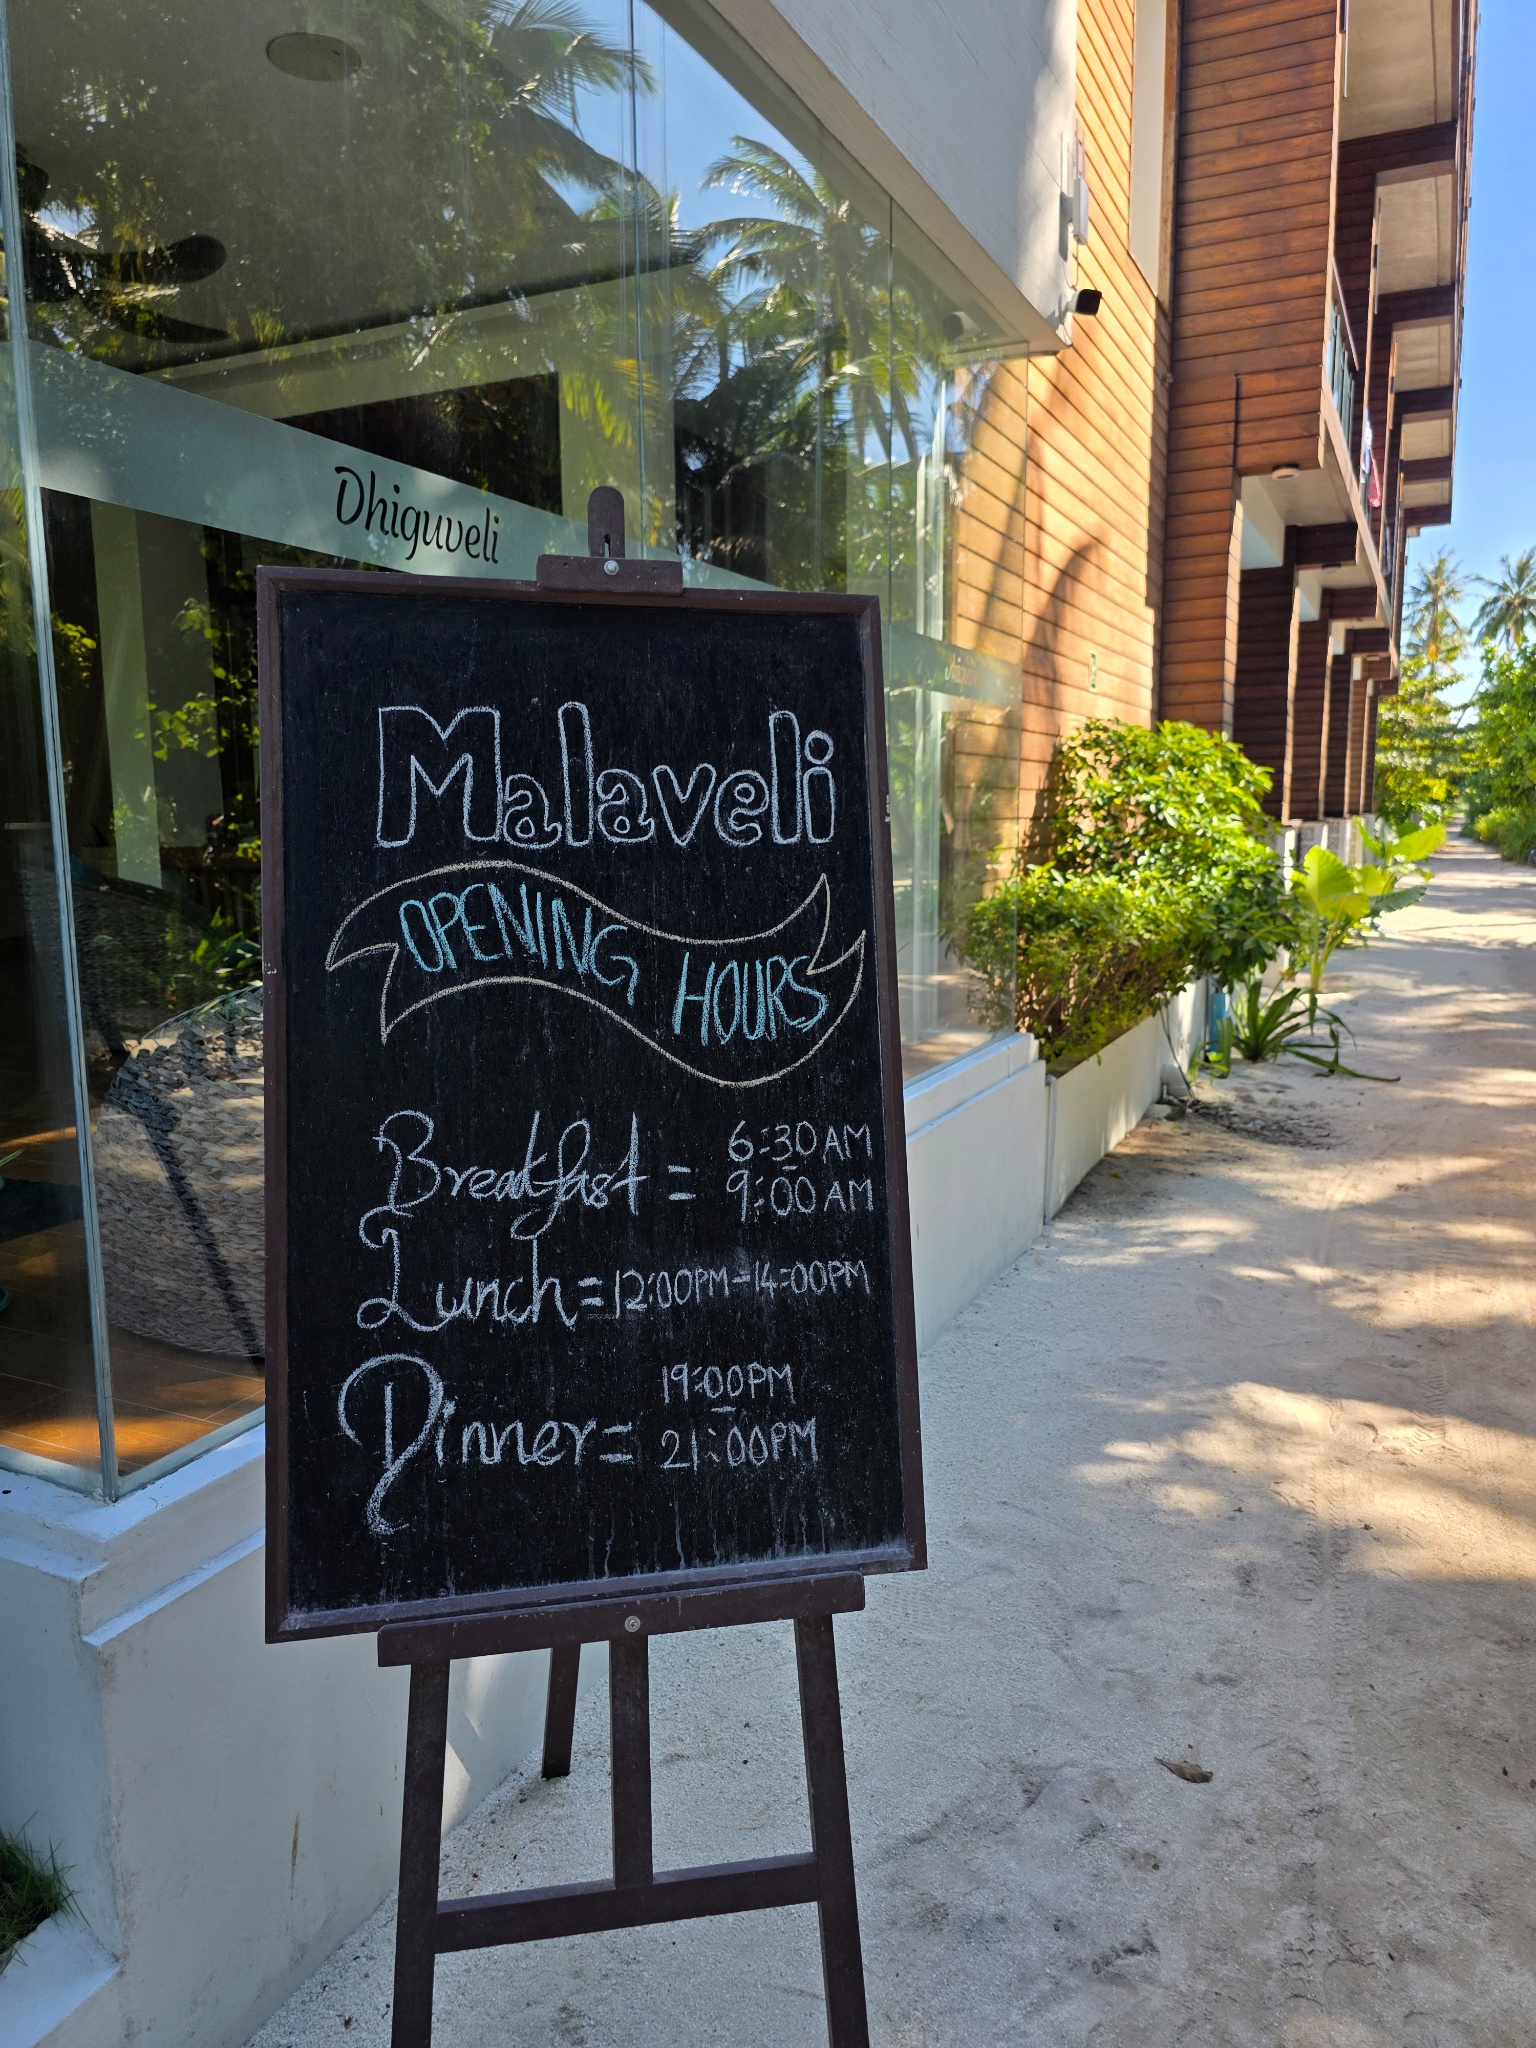 Dhiguveli
Malaveli
OPENING HOURS
Breakfast = 6:30 AM
9:00 AM
Lunch = 12:00PM - 14:00PM
19:00PM
Dinner = 21:00PM